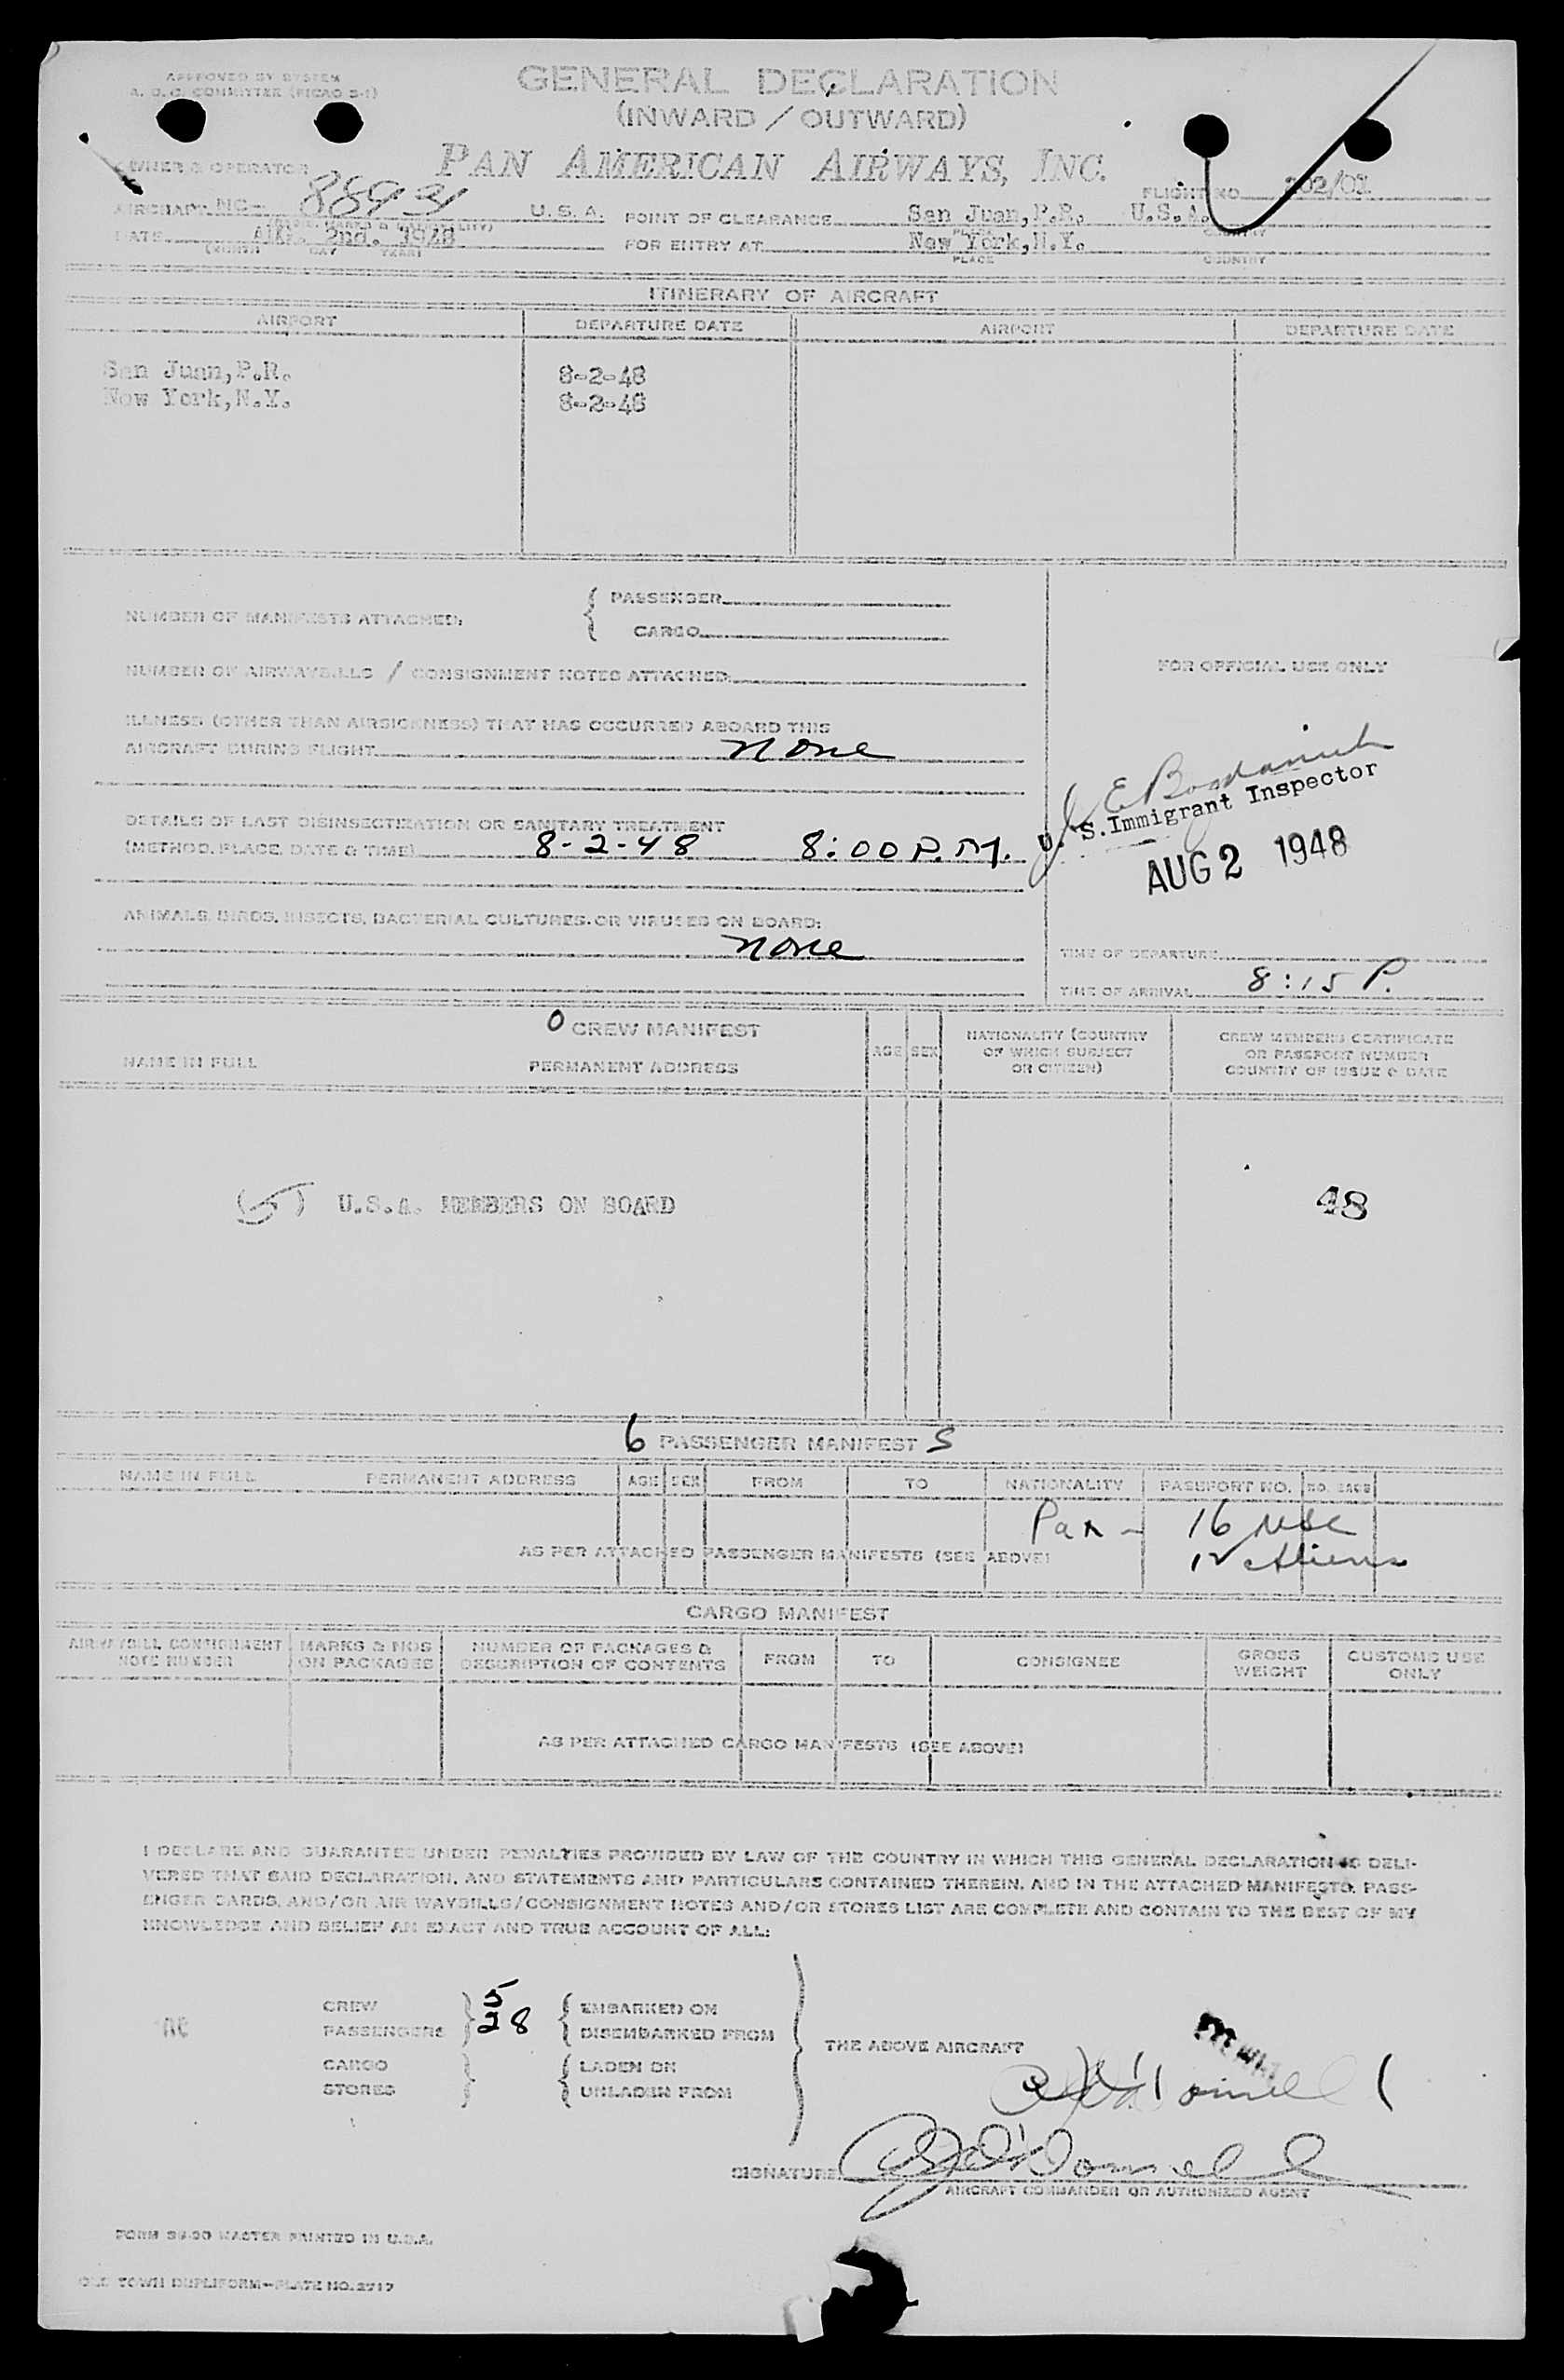 APPROVED BY SYSTEM
A. O. C. COMMITTEE (PICAO 3-1)
GENERAL DECLARATION
(INWARD / OUTWARD)
OWNER & OPERATOR
PAN AMERICAN AIRWAYS, INC.
FLIGHT NO. 202/01
AIRCRAFT NC- U.S.A. POINT OF CLEARANCE San Juan, P.R. U.S.A.
DATE Aug. 2nd. 1948 FOR ENTRY AT New York, N.Y.
(MONTH DAY YEAR) PLACE COUNTRY
ITINERARY OF AIRCRAFT
AIRPORT DEPARTURE DATE AIRPORT DEPARTURE DATE
San Juan, P.R. 8-2-48
New York, N.Y. 8-2-48
NUMBER OF MANIFESTS ATTACHED: { PASSENGER
CARGO
NUMBER OF AIRWAYBILLS / CONSIGNMENT NOTES ATTACHED:
FOR OFFICIAL USE ONLY
ILLNESS (OTHER THAN AIRSICKNESS) THAT HAS OCCURRED ABOARD THIS
AIRCRAFT DURING FLIGHT none
U. S. Immigrant Inspector
AUG 2 1948
DETAILS OF LAST DISINSECTIZATION OR SANITARY TREATMENT
(METHOD, PLACE, DATE & TIME) 8-2-48 8:00 P.M.
ANIMALS, BIRDS, INSECTS, BACTERIAL CULTURES, OR VIRUSES ON BOARD:
none
TIME OF DEPARTURE
TIME OF ARRIVAL 8:15 P.
0 CREW MANIFEST
NAME IN FULL PERMANENT ADDRESS AGE SEX NATIONALITY (COUNTRY OF WHICH SUBJECT OR CITIZEN) CREW MEMBERS CERTIFICATE OR PASSPORT NUMBER COUNTRY OF ISSUE & DATE
(5) U.S.A. MEMBERS ON BOARD 48
6 PASSENGER MANIFEST S
NAME IN FULL PERMANENT ADDRESS AGE SEX FROM TO NATIONALITY PASSPORT NO. NO. BAGS
Pax - 16 USC
AS PER ATTACHED PASSENGER MANIFESTS (SEE ABOVE) 12 Aliens
CARGO MANIFEST
AIRWAYBILL CONSIGNMENT NOTE NUMBER MARKS & NOS ON PACKAGES NUMBER OF PACKAGES & DESCRIPTION OF CONTENTS FROM TO CONSIGNEE GROSS WEIGHT CUSTOMS USE ONLY
AS PER ATTACHED CARGO MANIFESTS (SEE ABOVE)
I DECLARE AND GUARANTEE UNDER PENALTIES PROVIDED BY LAW OF THE COUNTRY IN WHICH THIS GENERAL DECLARATION IS DELI-
VERED THAT SAID DECLARATION, AND STATEMENTS AND PARTICULARS CONTAINED THEREIN, AND IN THE ATTACHED MANIFESTS, PASS-
ENGER CARDS, AND/OR AIR WAYBILLS/CONSIGNMENT NOTES AND/OR STORES LIST ARE COMPLETE AND CONTAIN TO THE BEST OF MY
KNOWLEDGE AND BELIEF AN EXACT AND TRUE ACCOUNT OF ALL:
CREW } 5 { EMBARKED ON
PASSENGERS } 28 { DISEMBARKED FROM
THE ABOVE AIRCRAFT
CARGO } { LADEN ON
STORES } { UNLADEN FROM
SIGNATURE
AIRCRAFT COMMANDER OR AUTHORIZED AGENT
MASTER PRINTED IN U.S.A.
OLD TOWN DUPLIFORM—PLATE NO. 2717